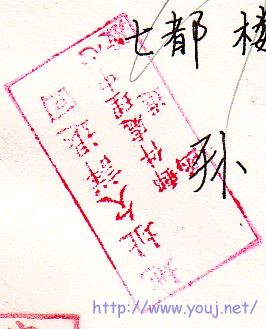 七都楼
孙
地址欠詳退回
郵件處理中心
http://www.youj.net/